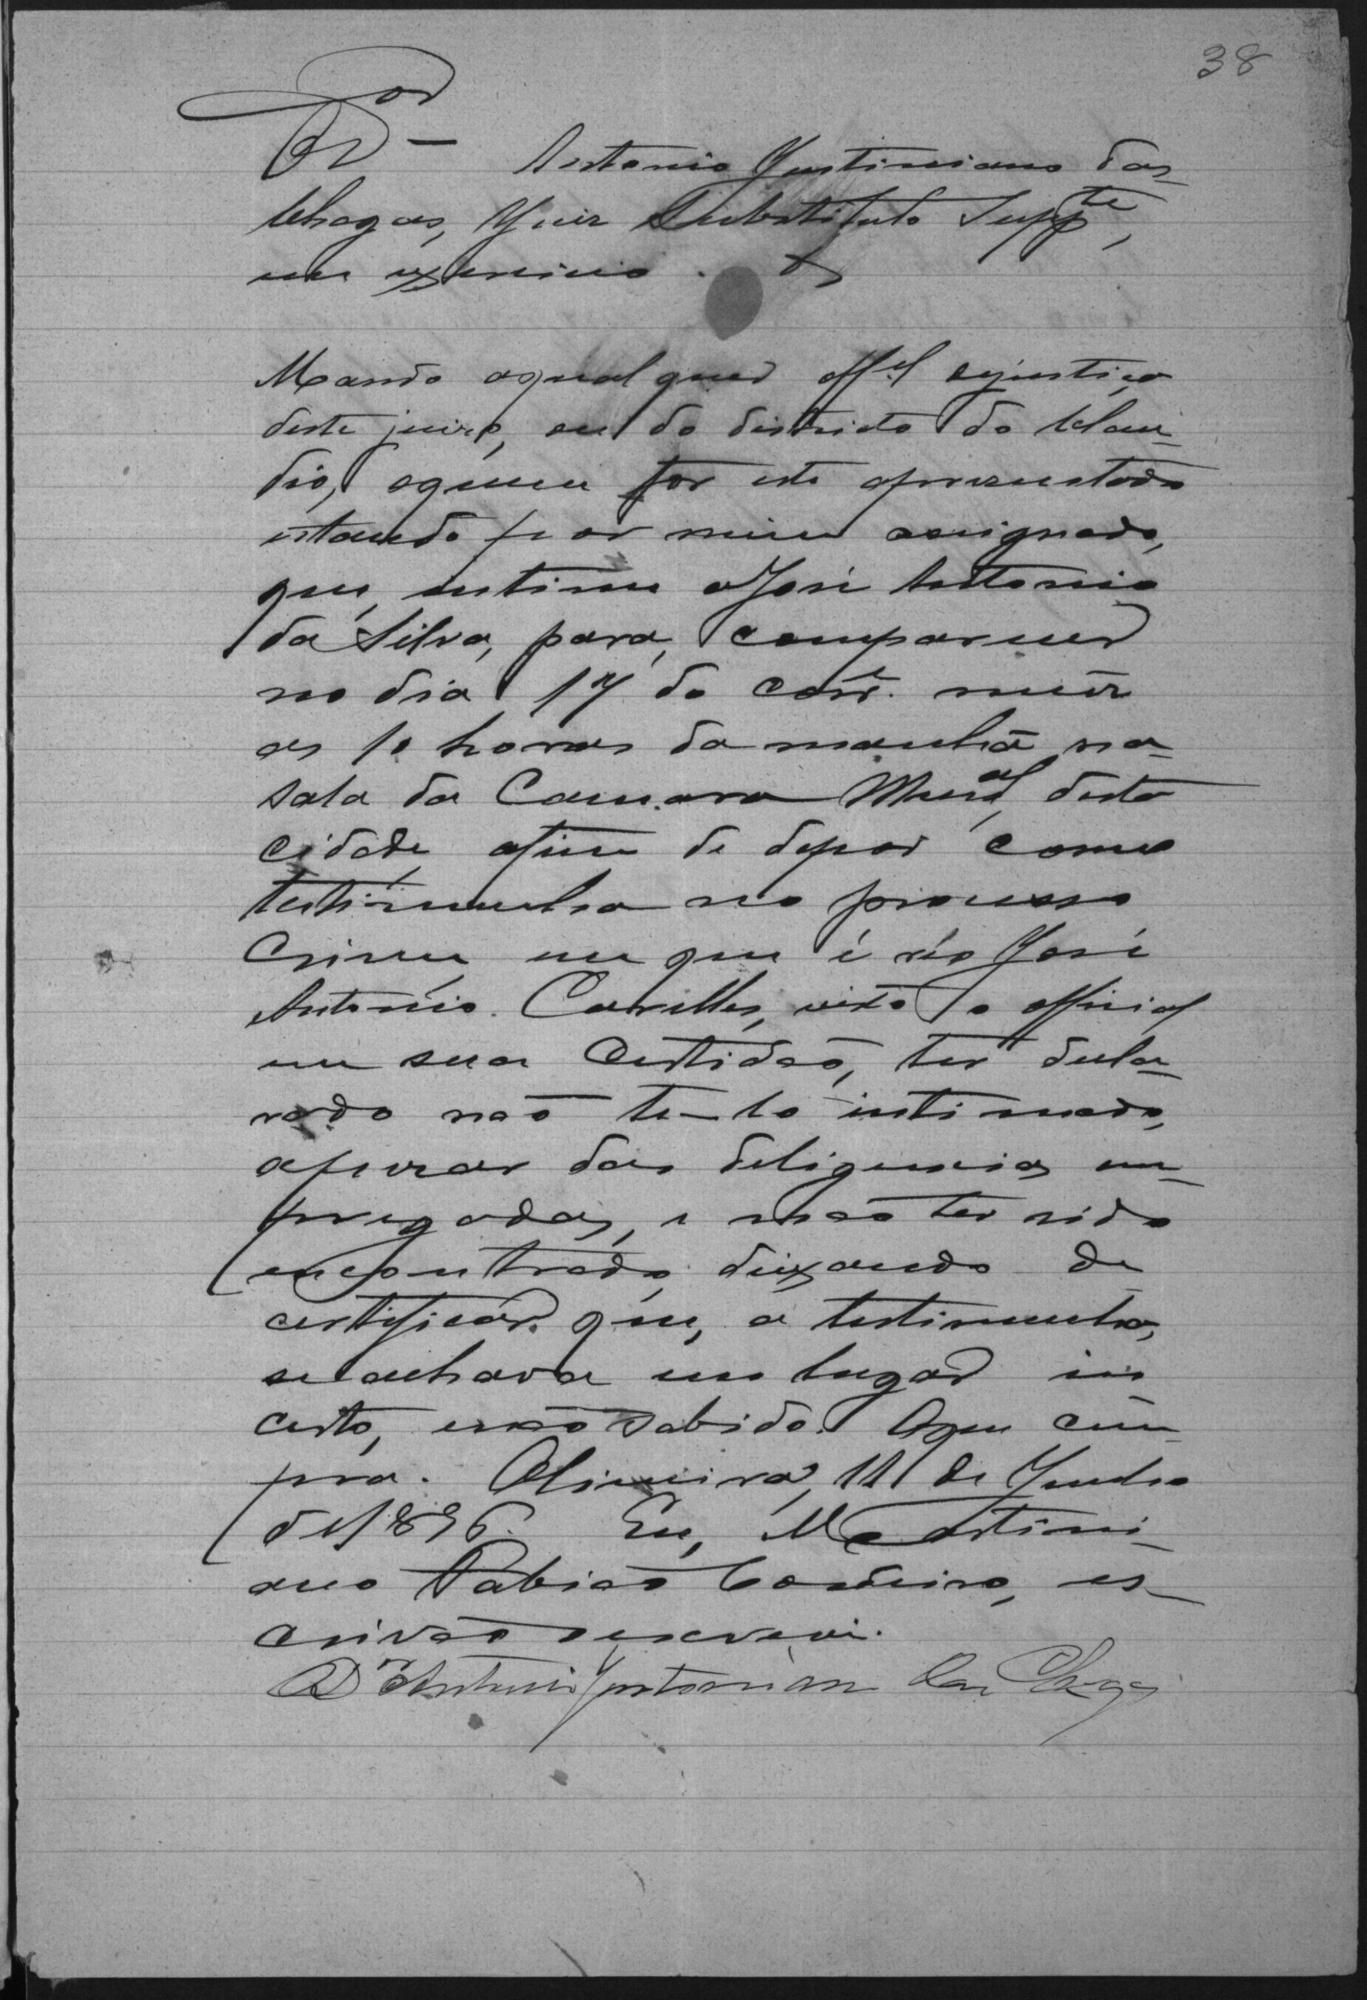 38
Dor
Antonio Justiniano das
Chagas, Juiz Substituto Supp.te,
em exercicio.
Mando aqualquer off.el dejustiça
deste juizo, ou do districto do Clau-
dio, aquem for este apresentado
estando por mim assignado,
que, intime a José Antonio
da Silva, para, comparecer
no dia 17 do corr.e mez
as 10 horas da manhã na
sala da Camara Mun.al, desta
cidade afim de depor como
testimunha no processo
Crime, em que é réo José
Antonio Carelles, visto o official
em sua Certidão, ter decla-
rado não te-lo intimado,
apezar das deligencias em-
pregadas, e não ter sido
encontrado, deixando de
certificar que, a testimunha,
se achava em lugar in
certo, enão sabido. Oque cum-
pra. Oliveira, 11 de Junho
de 1896. Eu, Martini-
ano Fabião Cordeiro, es-
crivão oescrevi.
Dr Antonio Justiniano das Chagas